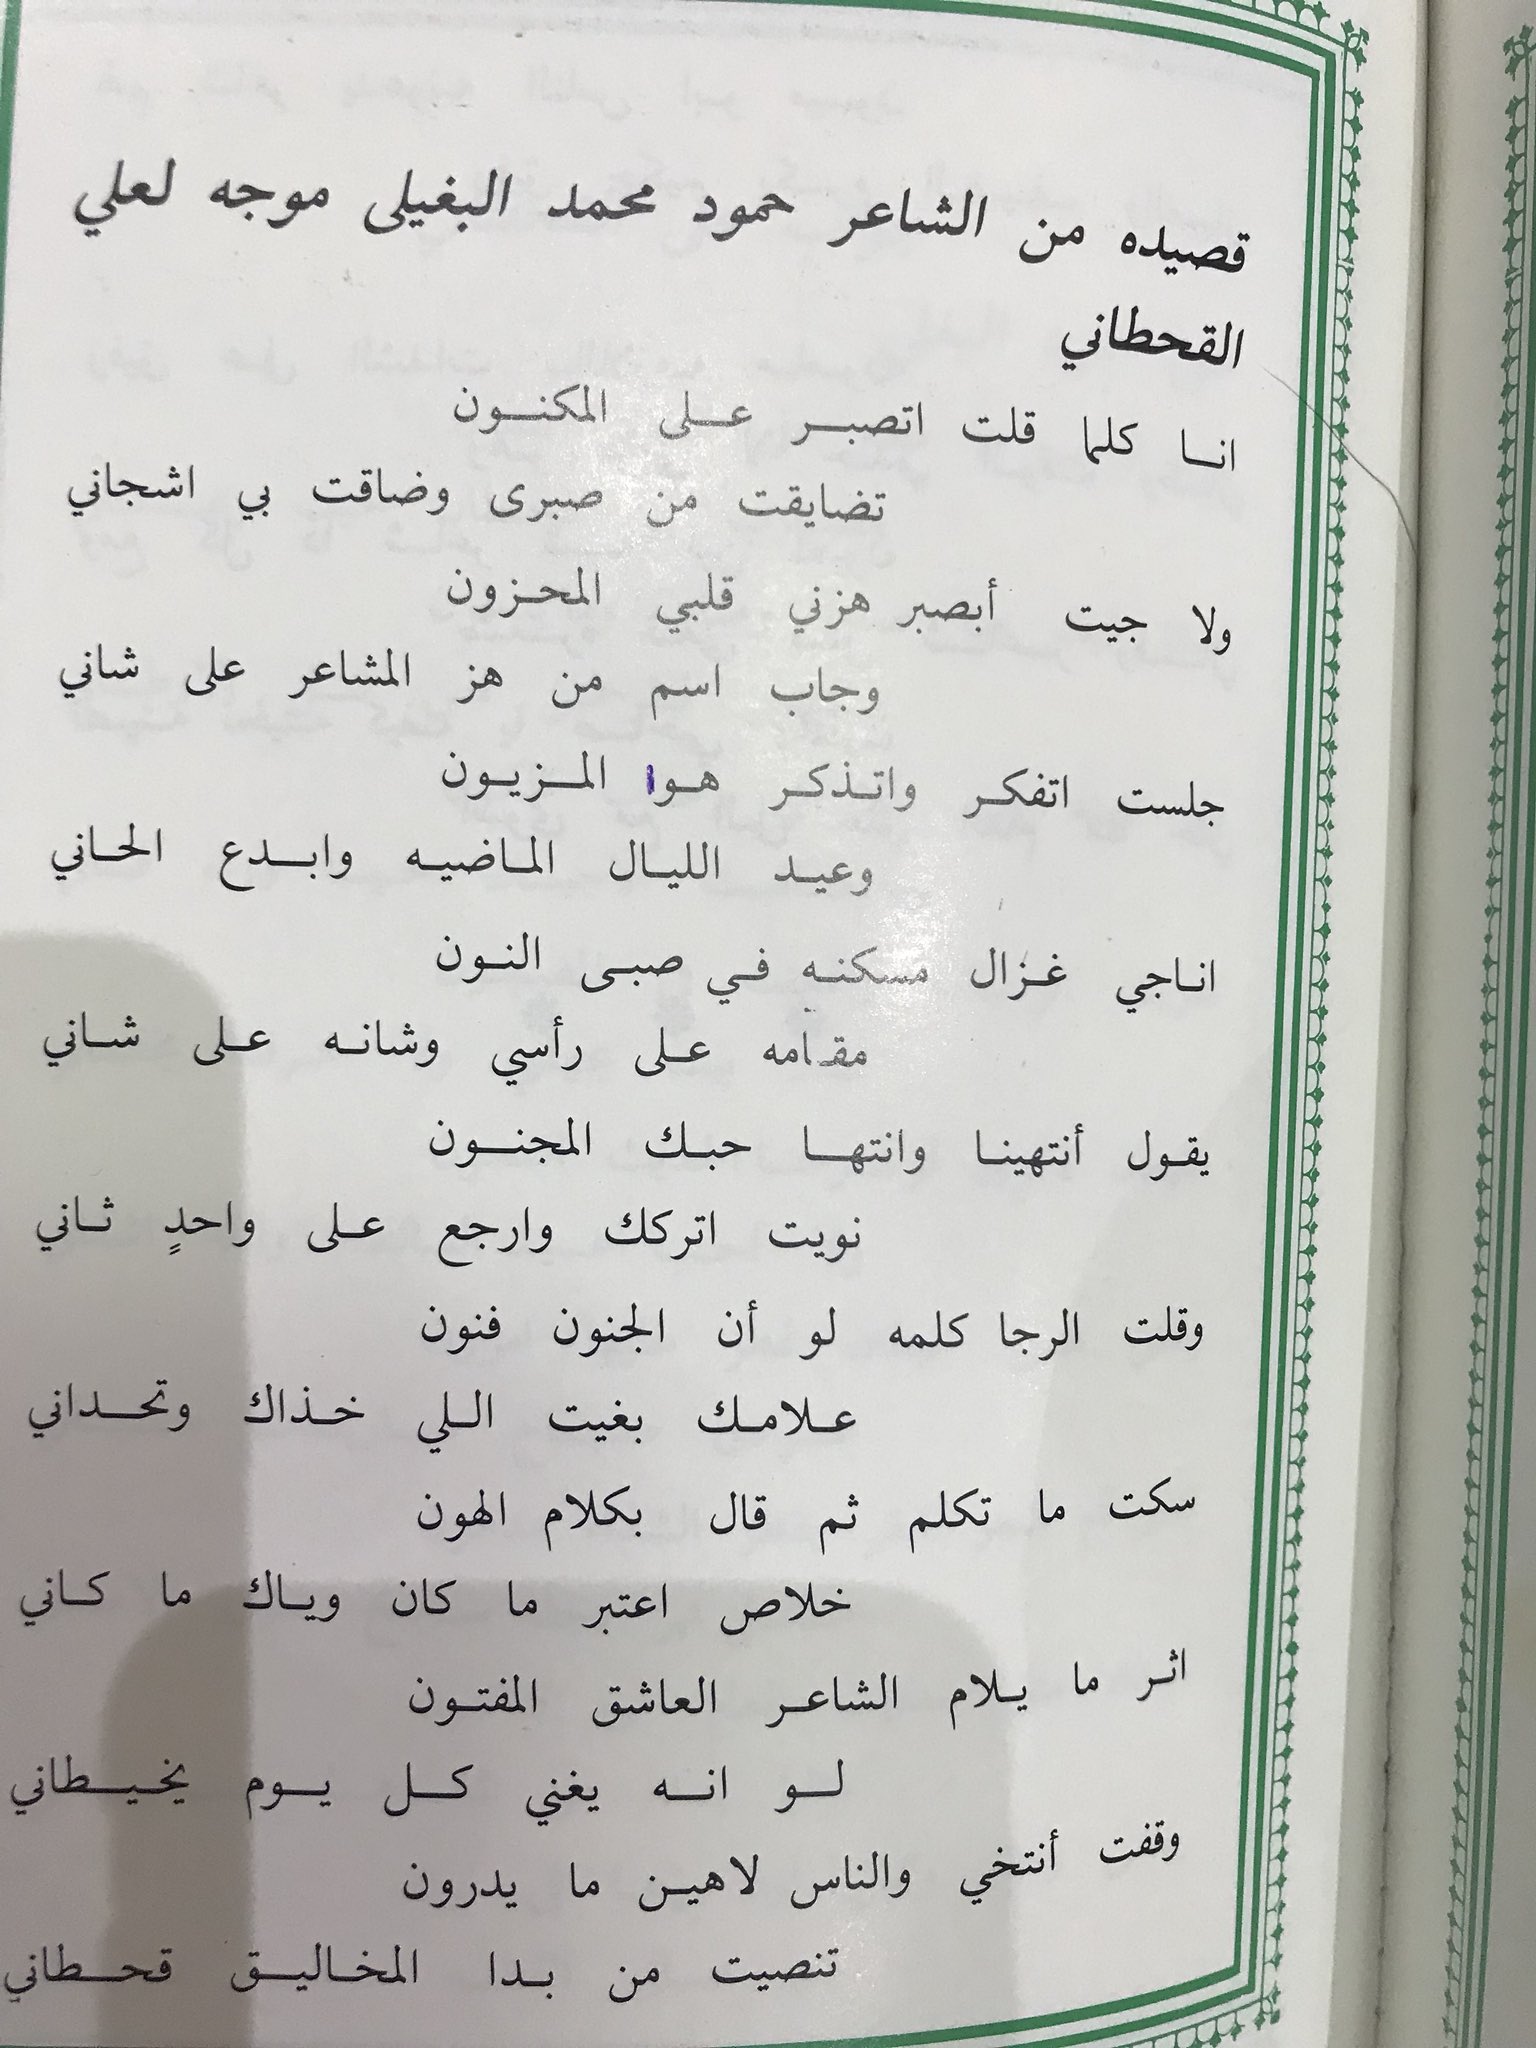 قصيده من الشاعر حمود محمد البغيلى موجه لعلي
القحطاني
انا كلما قلت اتصبر على المكنون
تضايقت من صبرى وضاقت بي اشجاني
ولا جيت أبصبر هزني قلبي المحزون
وجاب اسم من هز المشاعر على شاني
جلست اتفكر واتذكر هوا المزيون
وعيد الليال الماضيه وابدع الحاني
اناجي غزال مسكنه في صبى النون
مقامه على رأسي وشانه على شاني
يقول أنتهينا وانتها حبك المجنون
نويت اتركك وارجع على واحدٍ ثاني
وقلت الرجا كلمه لو أن الجنون فنون
علامك بغيت اللي خذاك وتحداني
سكت ما تكلم ثم قال بكلام الهون
خلاص اعتبر ما كان وياك ما كاني
اثر ما يلام الشاعر العاشق المفتون
لو انه يغني كل يوم يخيطاني
وقفت أنتخي والناس لاهين ما يدرون
تنصيت من بدا المخاليق قحطاني